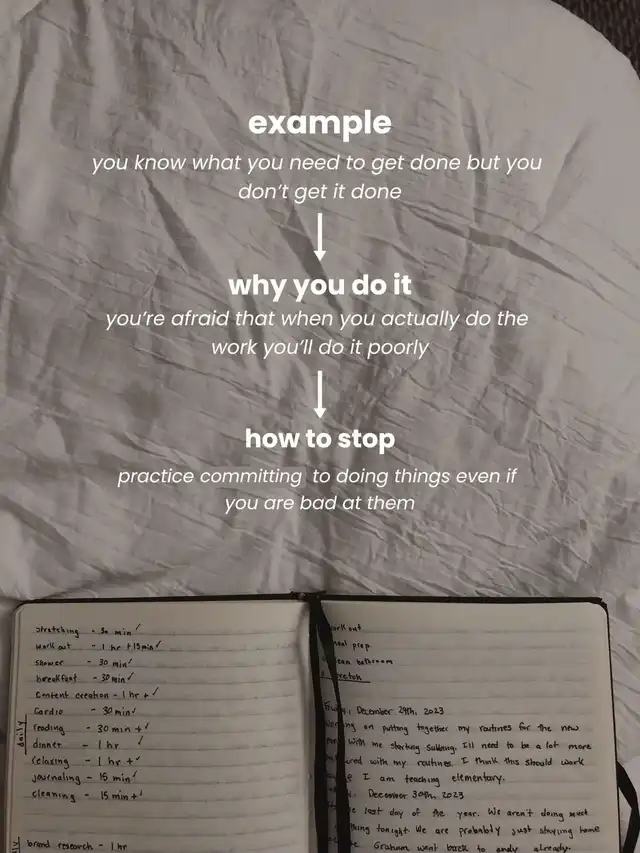 example
you know what you need to get done but you
don't get it done
why you do it
you're afraid that when you actually do the
work you'll do it poorly
how to stop
practice committing to doing things even if
you are bad at them
daily
stretching - 30 min ✓
work out - 1 hr + 15min ✓
shower - 30 min ✓
breakfast - 30 min ✓
content creation - 1 hr + ✓
cardio - 30 min ✓
reading - 30 min + ✓
dinner - 1 hr ✓
relaxing - 1 hr + ✓
journaling - 15 min ✓
cleaning - 15 min + ✓
brand research - 1 hr
work out
prep
bathroom
December 29th, 2023
on putting together my routines for the new
with me starting subbing. I'll need to be a lot more
with my routines. I think this should work
I am teaching elementary.
December 30th, 2023
last day of the year. We aren't doing much
tonight. We are probably just staying home
Graham went back to already.